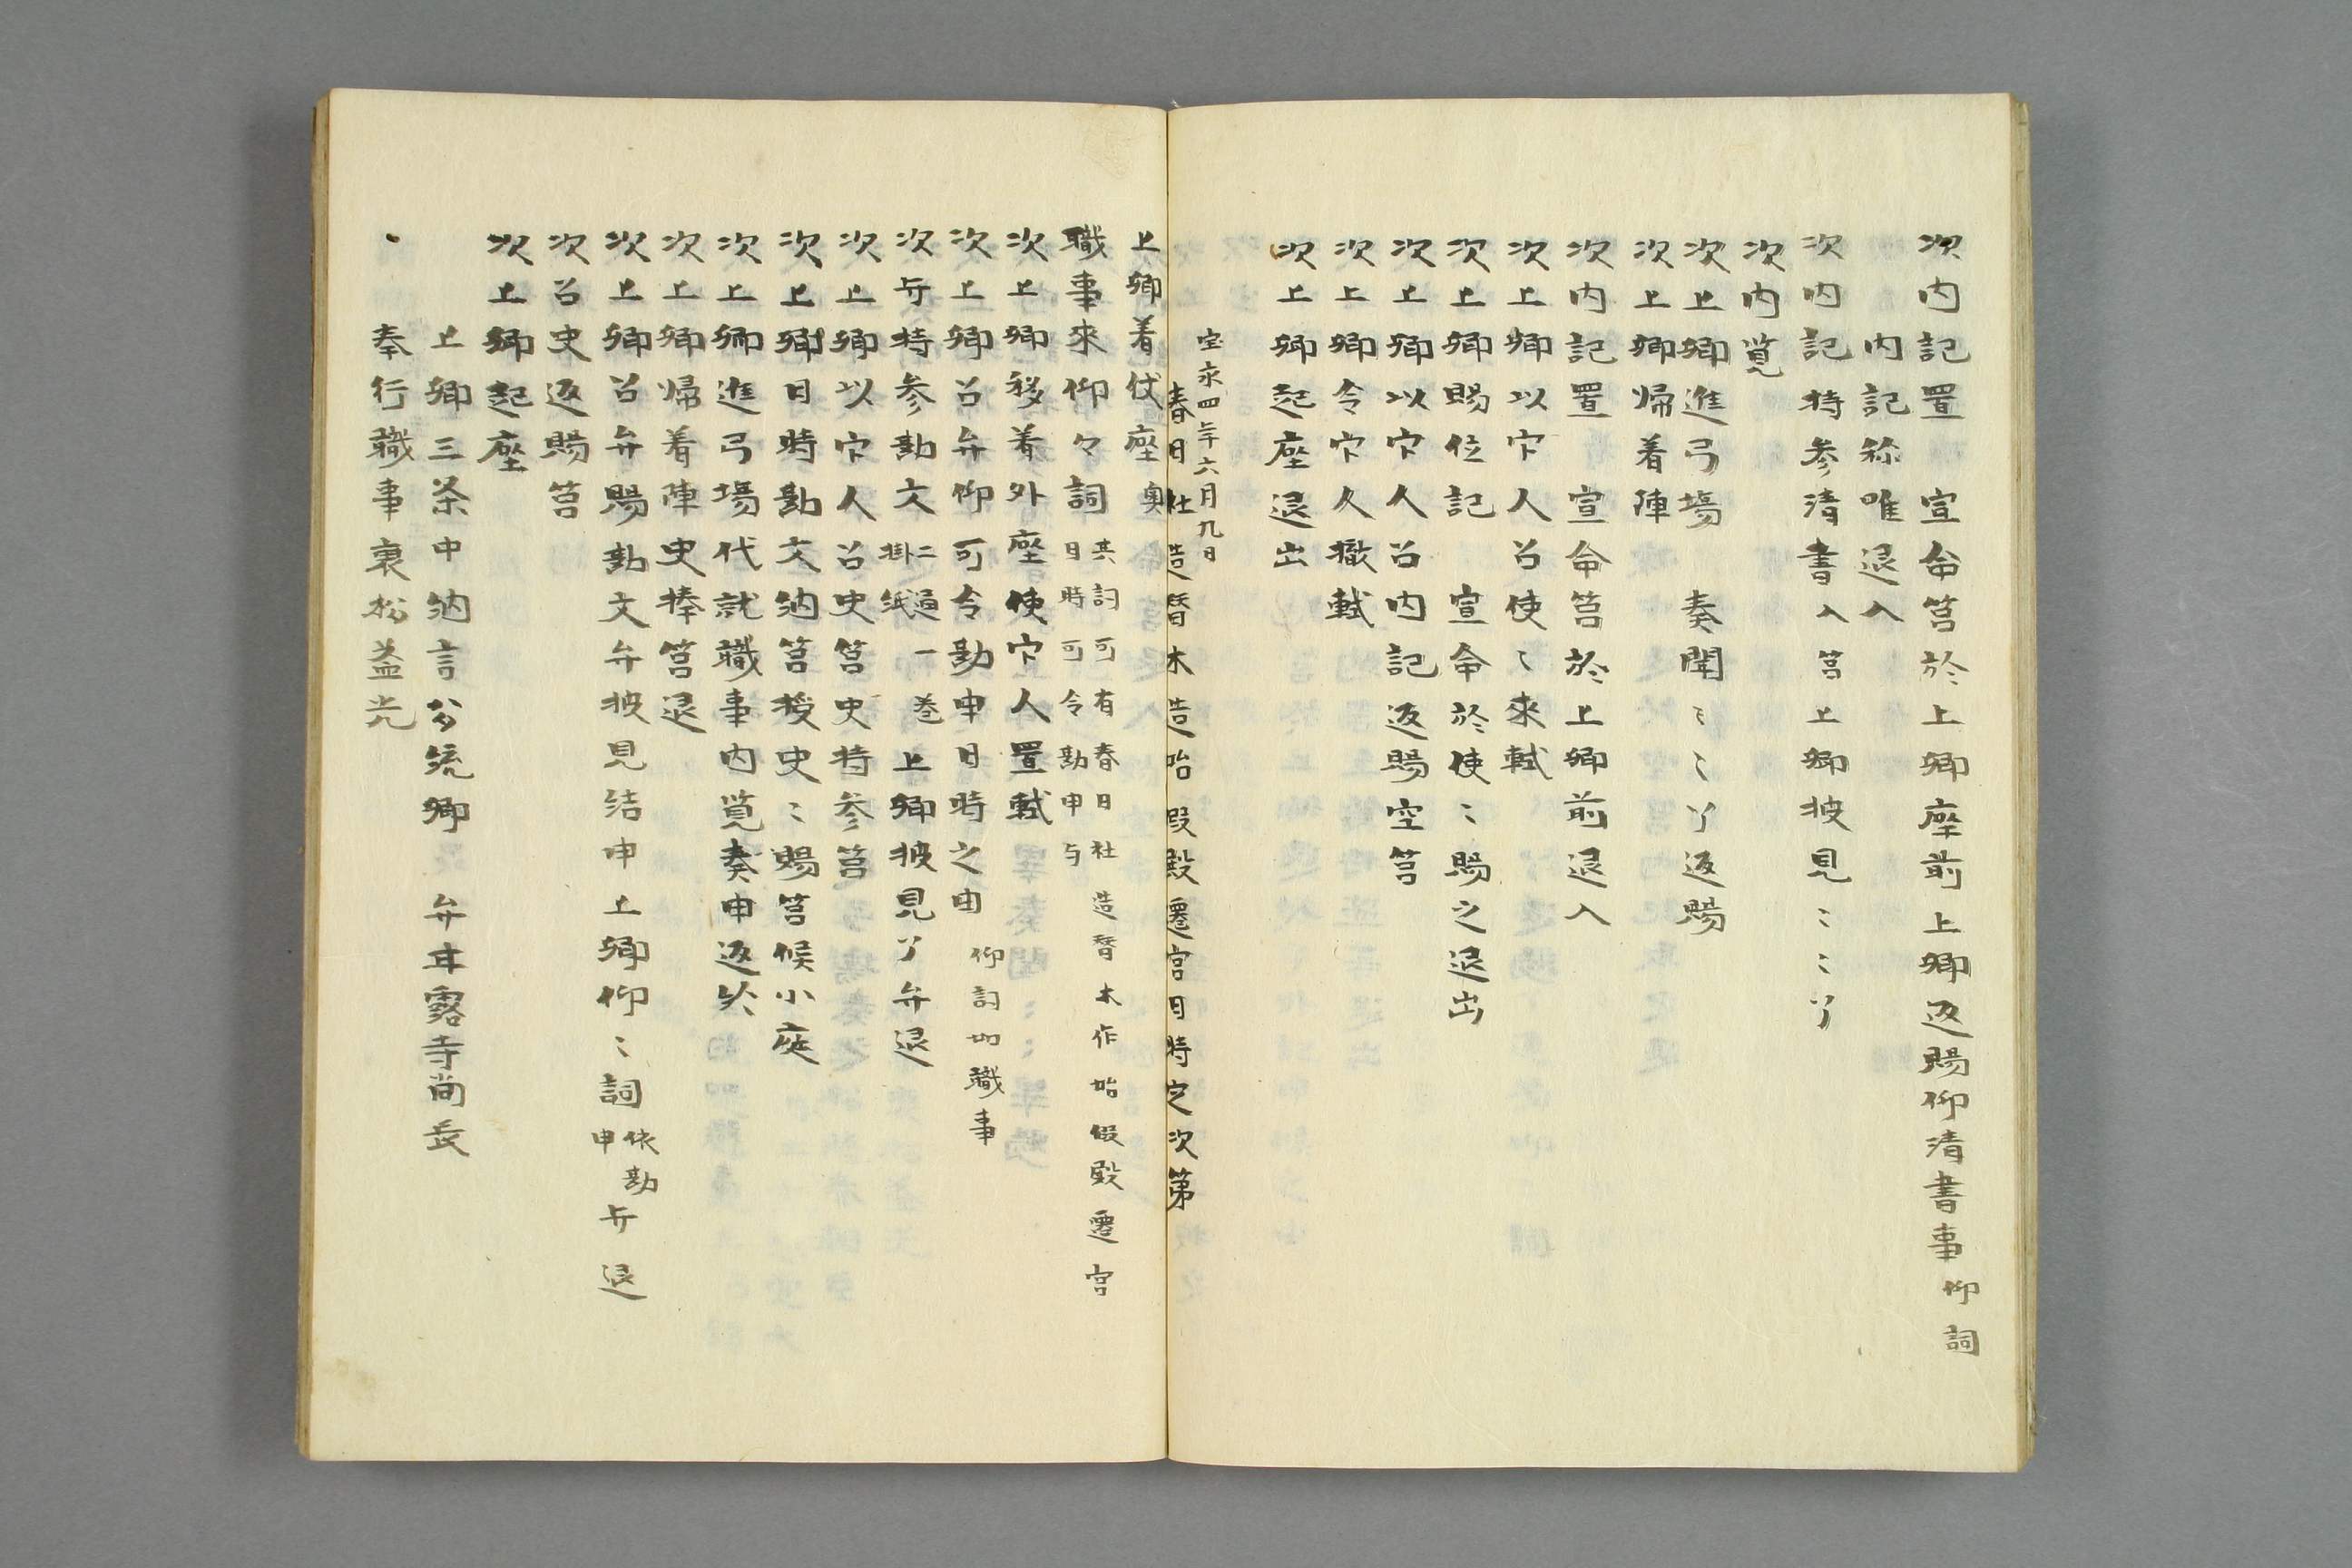 次内記置　宣命筥於上卿座前上卿返賜仰清書事 仰詞
内記称唯退入
次内記持参清書入筥上卿披見〻〻了
次内覧
次上卿進弓場　奏聞〻〻了返賜
次上卿帰着陣
次内記置　宣命筥於上卿前退入
次上卿以官人召使〻来軾
次上卿賜位記　宣命於使〻賜之退出
次上卿以官人召内記返賜空筥
次上卿令官人撤軾
次上卿起座退出
宝永四年六月九日
春日社造替木造始假殿遷宮日時定次第
上卿着仗座 奥
職事来仰々詞 其詞可有春日社造替木作始假殿遷宮
日時可令勘申与
次上卿移着外座使官人置軾
次上卿召弁仰可令勘申日時之由 仰詞如職事
次弁持参勘文 二通一巻
掛紙
上卿披見了弁退
次上卿以官人召史筥史持参筥
次上卿日時勘文納筥授史〻賜筥候小庭
次上卿進弓場代就職事内覧奏申返給
次上卿帰着陣史捧筥退
次上卿召弁賜勘文弁披見結申上卿仰〻詞 依勘
申
弁退
次召史返賜筥
次上卿起座
上卿三条中納言公統卿　弁甘露寺尚長
奉行職事裏松益光